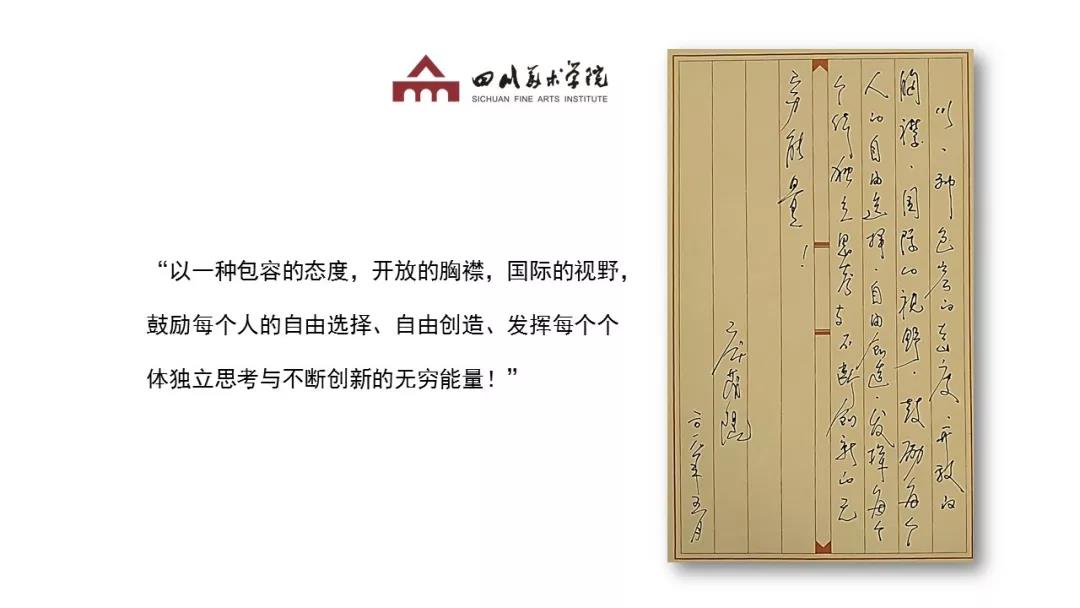 四川美术学院
SICHUAN FINE ARTS INSTITUTE
“以一种包容的态度，开放的胸襟，国际的视野，
鼓励每个人的自由选择、自由创造、发挥每个个
体独立思考与不断创新的无穷能量！”
以一种包容的态度，开放的
胸襟，国际的视野，鼓励每个
人的自由选择，自由创造，发挥每个
个体独立思考与不断创新的无
穷能量！
二〇一八年五月